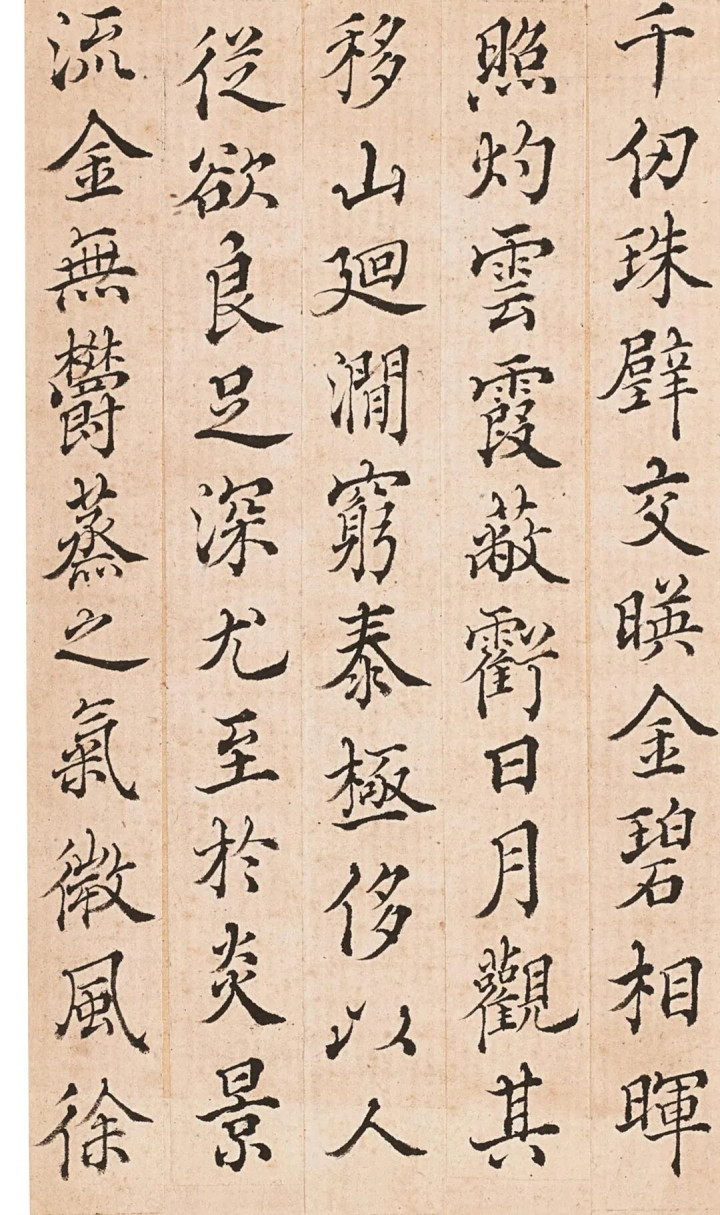 千仞珠璧交暎金碧相暉
照灼雲霞蔽虧日月觀其
移山廻澗窮泰極侈以人
從欲良足深尤至於炎景
流金無欝蒸之氣微風徐